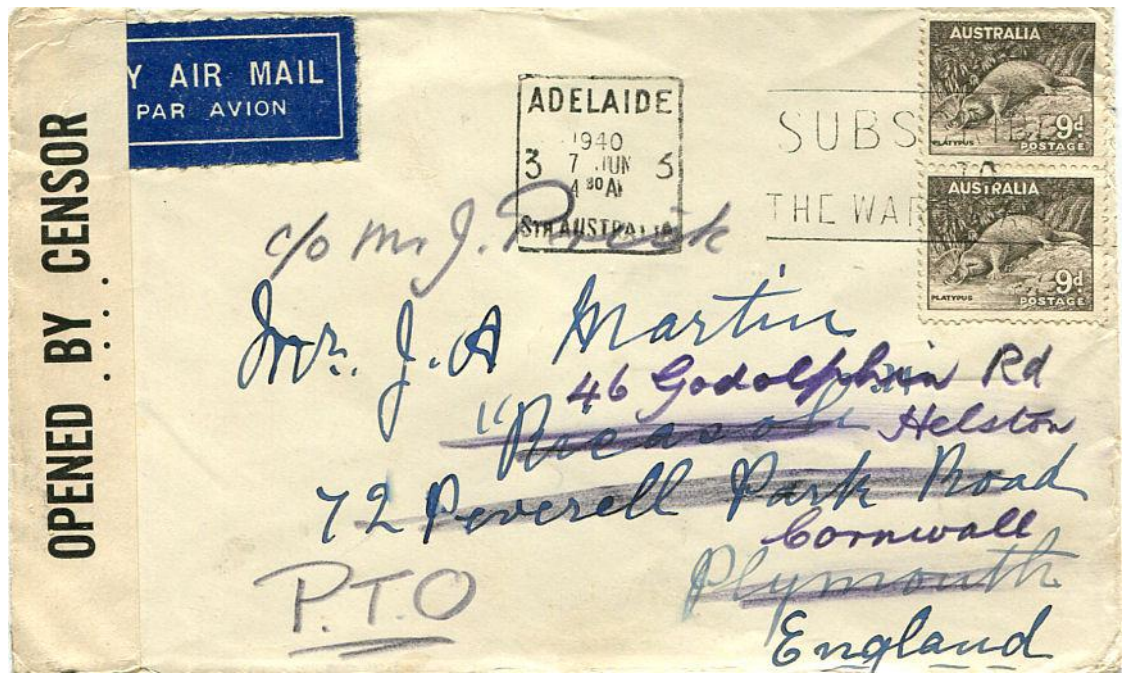 OPENED BY CENSOR
Y AIR MAIL
PAR AVION
ADELAIDE
1940
3 7 JUN 3
4 30 AM
STH AUSTRALIA
SUBSCRIBE
THE WAR
AUSTRALIA
9d
PLATYPUS POSTAGE
AUSTRALIA
9d
PLATYPUS POSTAGE
c/o Mr J.
Mr. J. A Martin
46 Godolphin Rd
Helston
72 Peverell Park Road
Cornwall
Plymouth
P.T.O
England